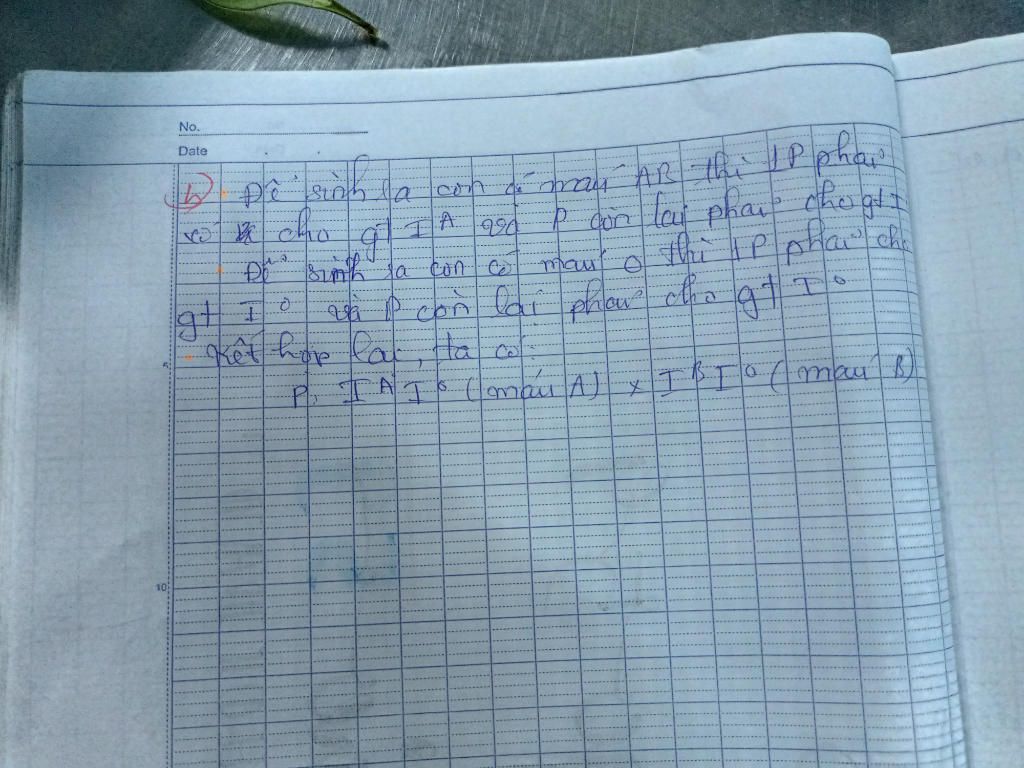 No.
Date
b) • Để sinh ra con có máu AB thì 1P phải
có cho gt I^A và P còn lại phải cho gt I
• Để sinh ra con có máu O thì 1P phải cho
gt I^O và P còn lại phải cho gt I^O
5
• Kết hợp lại, ta có:
P: I^A I^O (máu A) x I^B I^O (máu B)
10